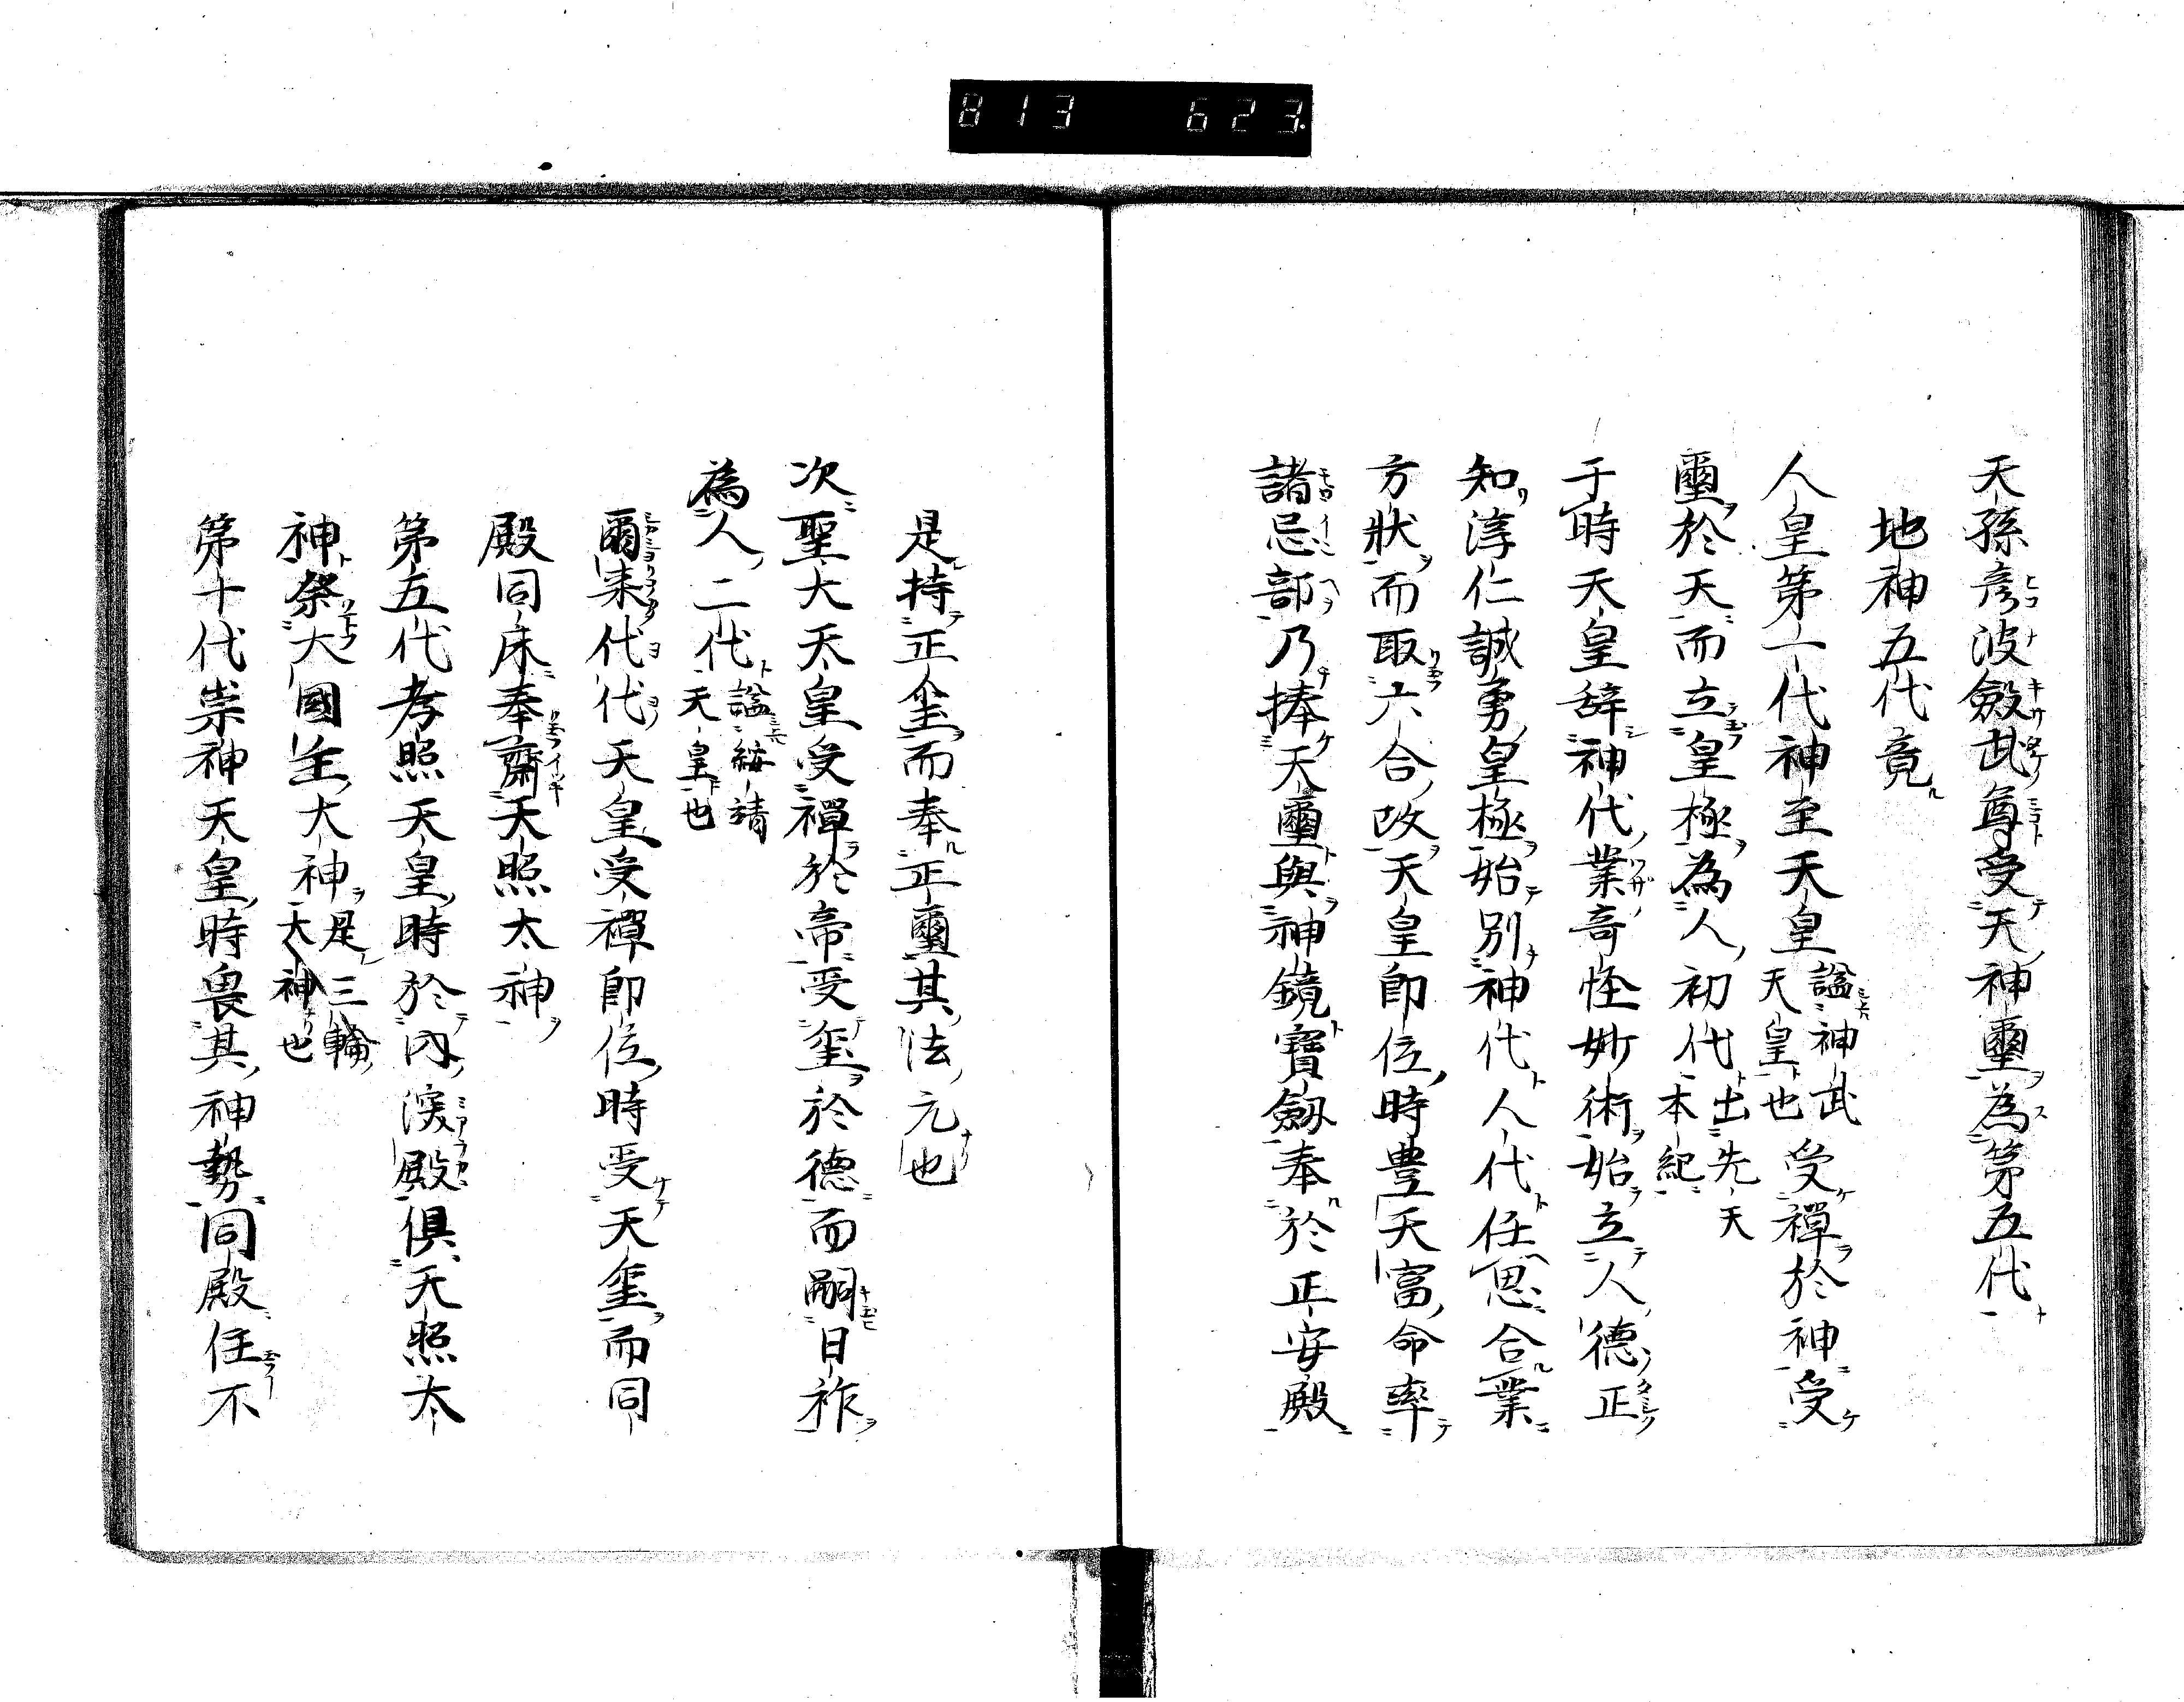 813 623.
天孫彦波劔武尊受天神璽為第五代
地神五代竟
人皇第一代神至天皇諡神武天皇也受禪於神受
璽於天而立皇極為人初代出先天本紀
于時天皇辞神代業奇怪妙術始立人德正
知淳仁誠勇皇極始別神代人代任思合業
方狀而取六合改天皇即位時豊天富命率
諸忌部乃捧天璽與神鏡寶劔奉於正安殿
是持正𡊮而奉正璽其法元也
次聖大天皇受禪於帝受玺於德而嗣日祚
為人二代諡綏靖天皇也
爾来代代天皇受禪即位時受天玺而同
殿同床奉齋天照太神
第五代孝照天皇時於内殿俱天照太
神祭大國主大神是三輪大神也
第十代崇神天皇時畏其神勢同殿住不